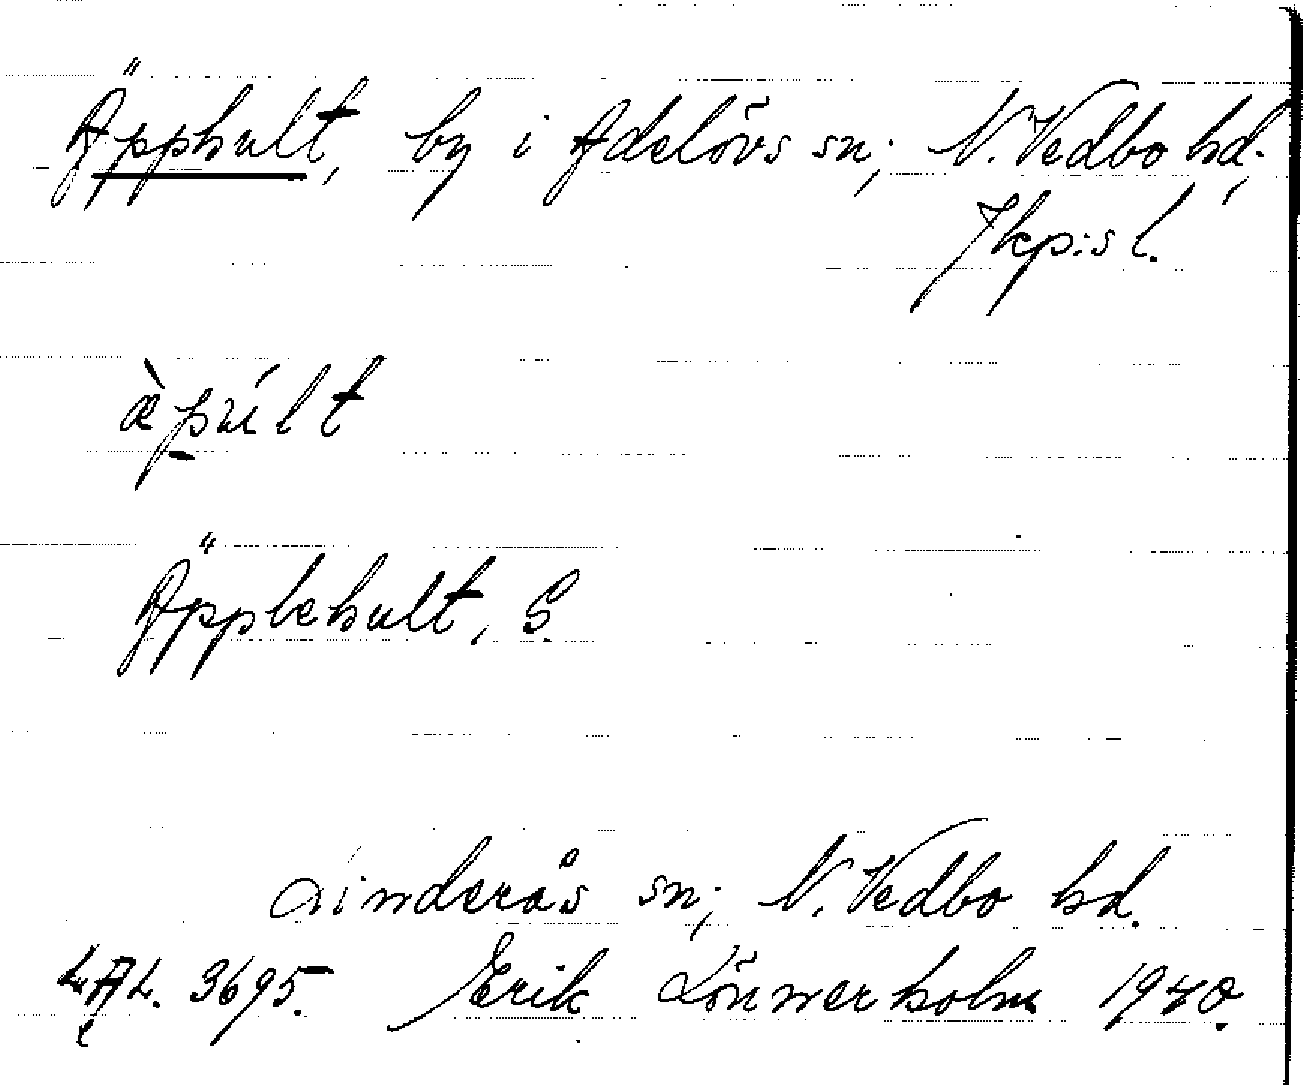 Äpphult, by i Adelövs sn; N. Vedbo hd,
Jkp:s l.
æ̀púlt
Äpplehult, S.
Linderås sn; N. Vedbo hd.
LAL. 3695. Erik Lönnerholm 1940.